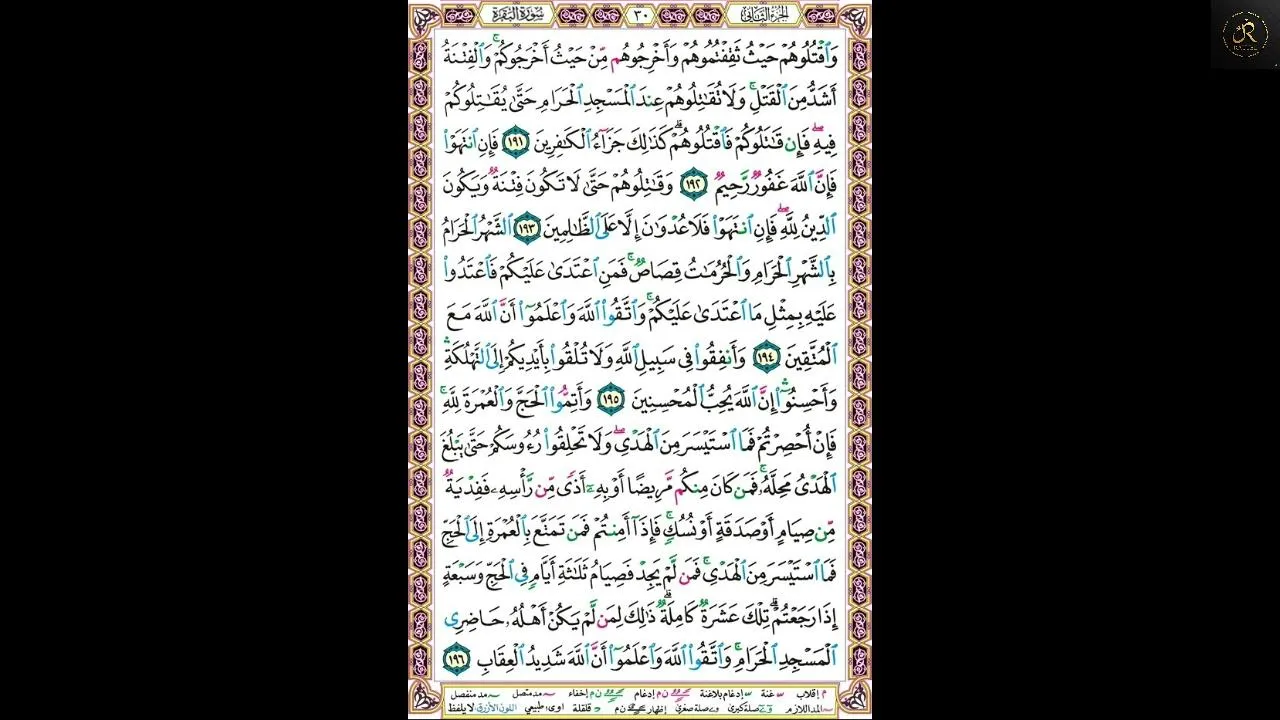 الجزء الثاني ٣٠ سورة البقرة
وَٱقْتُلُوهُمْ حَيْثُ ثَقِفْتُمُوهُمْ وَأَخْرِجُوهُم مِّنْ حَيْثُ أَخْرَجُوكُمْ ۚ وَٱلْفِتْنَةُ
أَشَدُّ مِنَ ٱلْقَتْلِ ۚ وَلَا تُقَٰتِلُوهُمْ عِندَ ٱلْمَسْجِدِ ٱلْحَرَامِ حَتَّىٰ يُقَٰتِلُوكُمْ
فِيهِ ۖ فَإِن قَٰتَلُوكُمْ فَٱقْتُلُوهُمْ ۗ كَذَٰلِكَ جَزَآءُ ٱلْكَٰفِرِينَ ١٩١ فَإِنِ ٱنتَهَوْا۟
فَإِنَّ ٱللَّهَ غَفُورٌ رَّحِيمٌ ١٩٢ وَقَٰتِلُوهُمْ حَتَّىٰ لَا تَكُونَ فِتْنَةٌ وَيَكُونَ
ٱلدِّينُ لِلَّهِ ۖ فَإِنِ ٱنتَهَوْا۟ فَلَا عُدْوَٰنَ إِلَّا عَلَى ٱلظَّٰلِمِينَ ١٩٣ ٱلشَّهْرُ ٱلْحَرَامُ
بِٱلشَّهْرِ ٱلْحَرَامِ وَٱلْحُرُمَٰتُ قِصَاصٌ ۚ فَمَنِ ٱعْتَدَىٰ عَلَيْكُمْ فَٱعْتَدُوا۟
عَلَيْهِ بِمِثْلِ مَا ٱعْتَدَىٰ عَلَيْكُمْ ۚ وَٱتَّقُوا۟ ٱللَّهَ وَٱعْلَمُوٓا۟ أَنَّ ٱللَّهَ مَعَ
ٱلْمُتَّقِينَ ١٩٤ وَأَنفِقُوا۟ فِى سَبِيلِ ٱللَّهِ وَلَا تُلْقُوا۟ بِأَيْدِيكُمْ إِلَى ٱلتَّهْلُكَةِ ۛ
وَأَحْسِنُوٓا۟ ۛ إِنَّ ٱللَّهَ يُحِبُّ ٱلْمُحْسِنِينَ ١٩٥ وَأَتِمُّوا۟ ٱلْحَجَّ وَٱلْعُمْرَةَ لِلَّهِ ۚ
فَإِنْ أُحْصِرْتُمْ فَمَا ٱسْتَيْسَرَ مِنَ ٱلْهَدْىِ ۖ وَلَا تَحْلِقُوا۟ رُءُوسَكُمْ حَتَّىٰ يَبْلُغَ
ٱلْهَدْىُ مَحِلَّهُۥ ۚ فَمَن كَانَ مِنكُم مَّرِيضًا أَوْ بِهِۦٓ أَذًى مِّن رَّأْسِهِۦ فَفِدْيَةٌ
مِّن صِيَامٍ أَوْ صَدَقَةٍ أَوْ نُسُكٍ ۚ فَإِذَآ أَمِنتُمْ فَمَن تَمَتَّعَ بِٱلْعُمْرَةِ إِلَى ٱلْحَجِّ
فَمَا ٱسْتَيْسَرَ مِنَ ٱلْهَدْىِ ۚ فَمَن لَّمْ يَجِدْ فَصِيَامُ ثَلَٰثَةِ أَيَّامٍ فِى ٱلْحَجِّ وَسَبْعَةٍ
إِذَا رَجَعْتُمْ ۗ تِلْكَ عَشَرَةٌ كَامِلَةٌ ۗ ذَٰلِكَ لِمَن لَّمْ يَكُنْ أَهْلُهُۥ حَاضِرِى
ٱلْمَسْجِدِ ٱلْحَرَامِ ۚ وَٱتَّقُوا۟ ٱللَّهَ وَٱعْلَمُوٓا۟ أَنَّ ٱللَّهَ شَدِيدُ ٱلْعِقَابِ ١٩٦
م إقلاب غنة إدغام بلاغنة ن م إدغام ن م إخفاء مد متصل مد منفصل
المد اللازم صلة كبرى صلة صغرى إظهار ن م قلقلة اوى: طبيعي اللون الأزرق: لا يلفظ